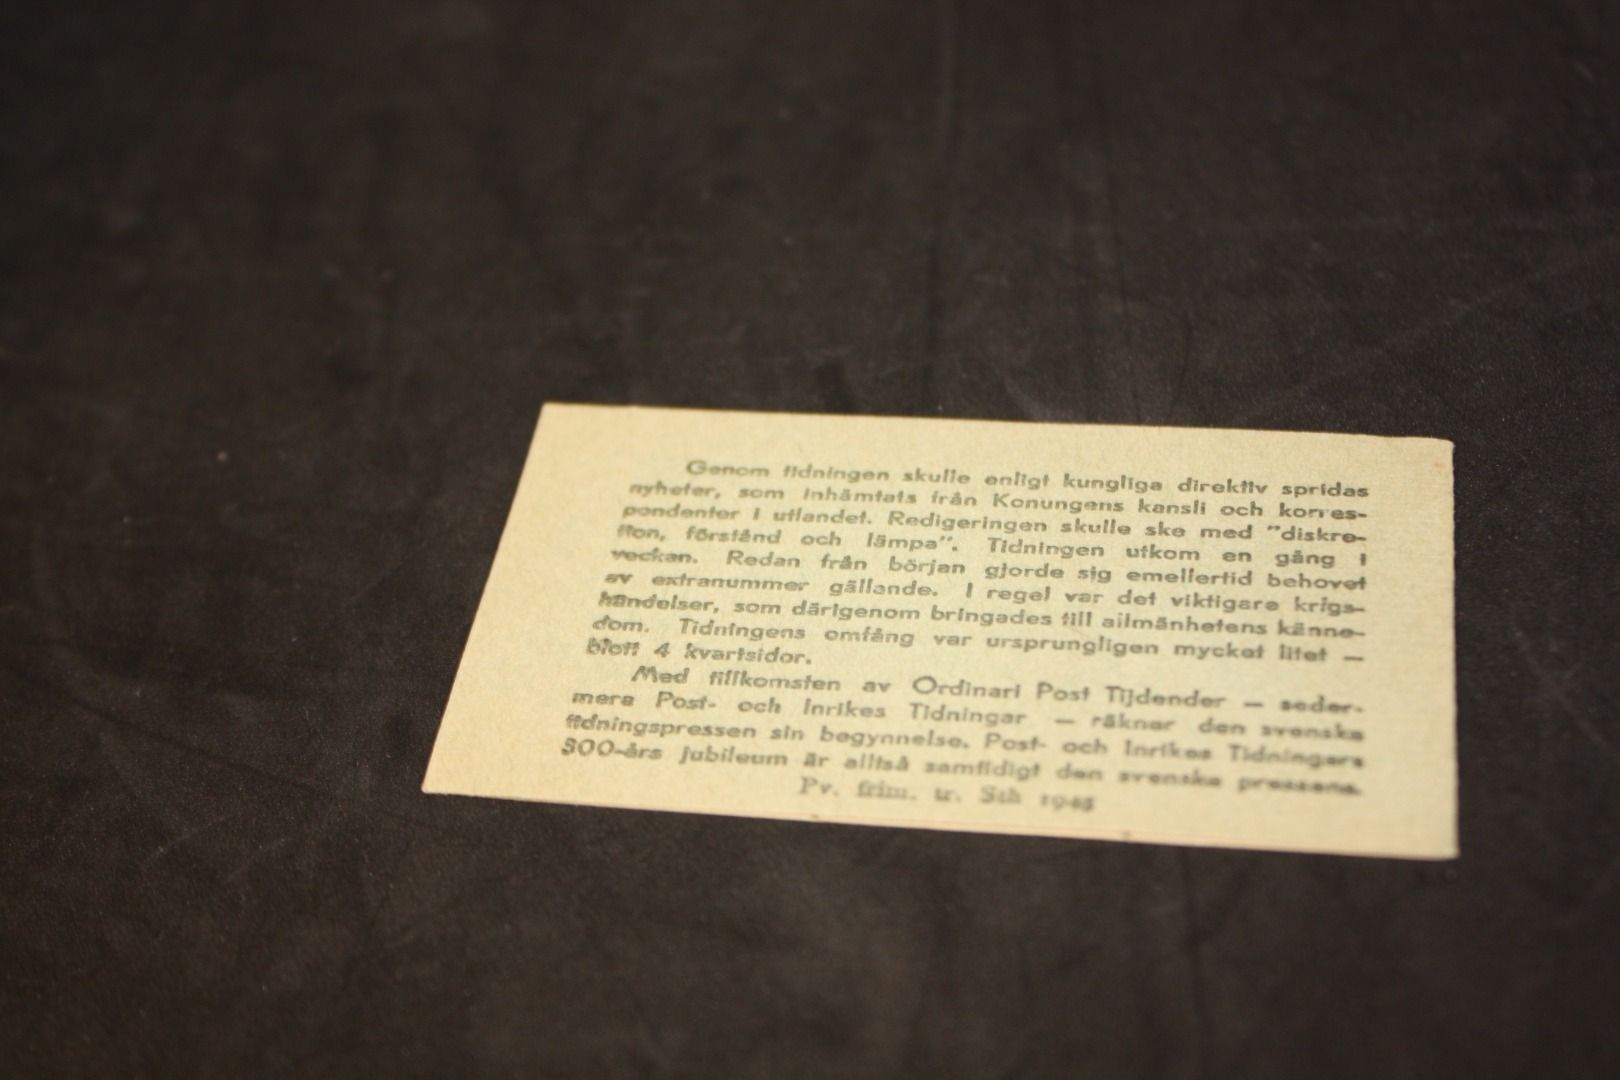 Genom tidningen skulle enligt kungliga direktiv spridas
nyheter, som inhämtats från Konungens kansli och korres-
pondenter i utlandet. Redigeringen skulle ske med "diskre-
tion, förstånd och lämpa". Tidningen utkom en gång i
veckan. Redan från början gjorde sig emellertid behovet
av extranummer gällande. I regel var det viktigare krigs-
händelser, som därigenom bringades till allmänhetens känne-
dom. Tidningens omfång var ursprungligen mycket litet —
blott 4 kvartsidor.
Med tillkomsten av Ordinari Post Tijdender — seder-
mera Post- och Inrikes Tidningar — räknar den svenska
tidningspressen sin begynnelse. Post- och Inrikes Tidningars
300-års jubileum är alltså samtidigt den svenska pressens.
Pv. frim. tr. Sth 1945